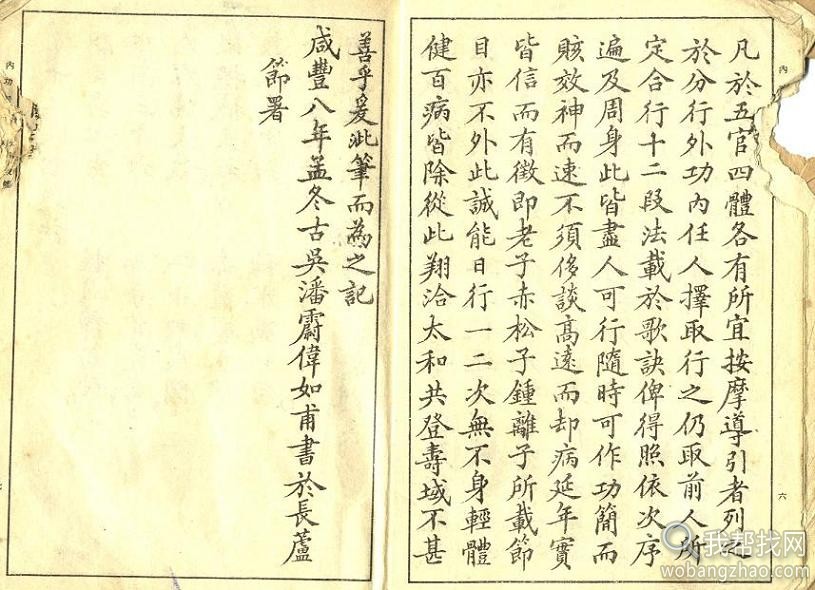 凡於五官四體各有所宜按摩導引者列之
於分行外功內任人擇取行之仍取前人所
定合行十二段法載於歌訣俾得照依次序
遍及周身此皆盡人可行隨時可作功簡而
賅效神而速不須侈談高遠而却病延年實
皆信而有徵即老子赤松子鍾離子所載節
目亦不外此誠能日行一二次無不身輕體
健百病皆除從此翔洽太和共登壽域不甚
善乎爰泚筆而為之記
咸豐八年孟冬古吳潘霨偉如甫書於長蘆
節署
內功
內
六
我帮找网
wobangzhao.com